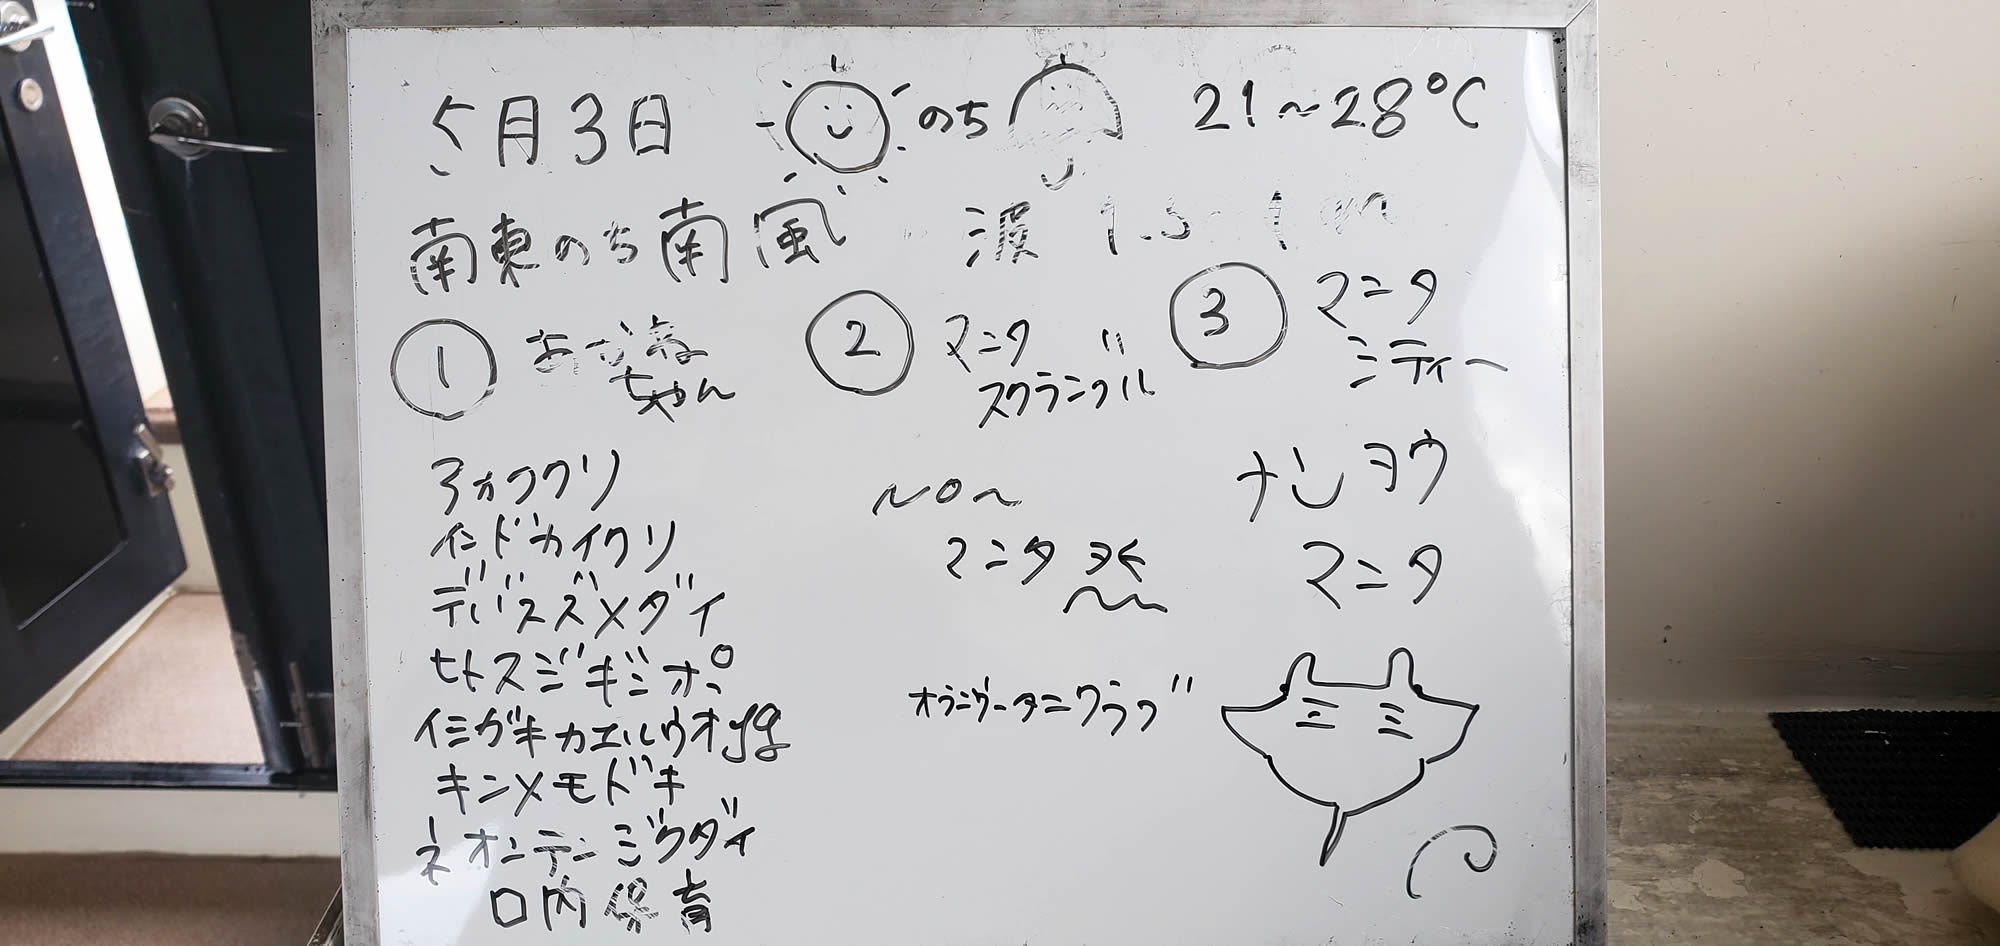 5月3日 のち 21~28℃
南東のち南風 波 1.5~1m
① あかねちゃん
② マンタスクランブル
③ マンタシティー
アオククリ
インドカイワリ
デバスズメダイ
ヒトスジギンポ
イシガキカエルウオyg
キンメモドキ
ネオンテンジクダイ
口内保育
~ロ~
マンタ
オランウータンクラブ
ナンヨウ
マンタ